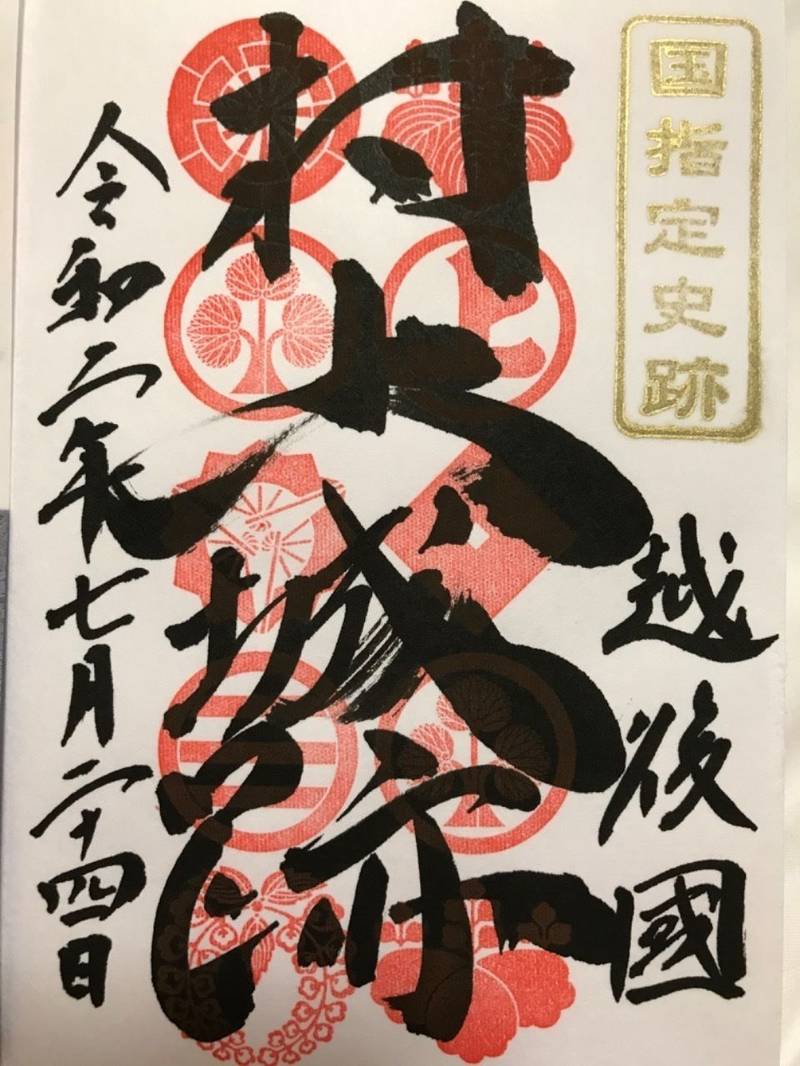 国指定史跡
越後國
村上城跡
上
令和二年七月二十四日